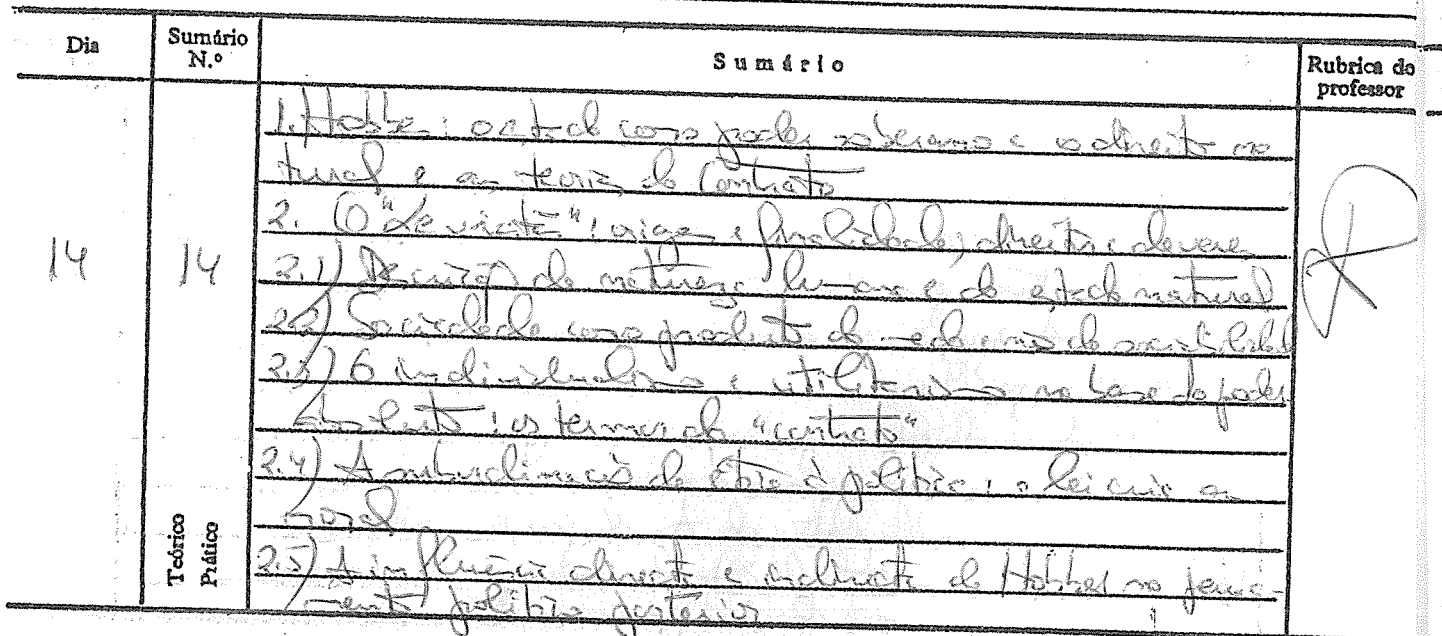 Dia
Sumário N.º
Sumário
Rubrica do professor
1. Hobbes: o estado como poder soberano e o direito na
tural e a teoria do Contrato
2. O "Leviatã": origem e finalidade; direitos e deveres
14
14
2.1) Descrição da natureza humana e do estado natural
2.2) Sociedade como produto do medo e não da sociabilidade
2.3) O individualismo e utilitarismo na base do poder
absoluto: os termos do "contrato"
2.4) A subordinação da ética à política: a lei cria a
moral
Teórico
Prático
2.5) A influência directa e indirecta de Hobbes no pensa-
mento político posterior